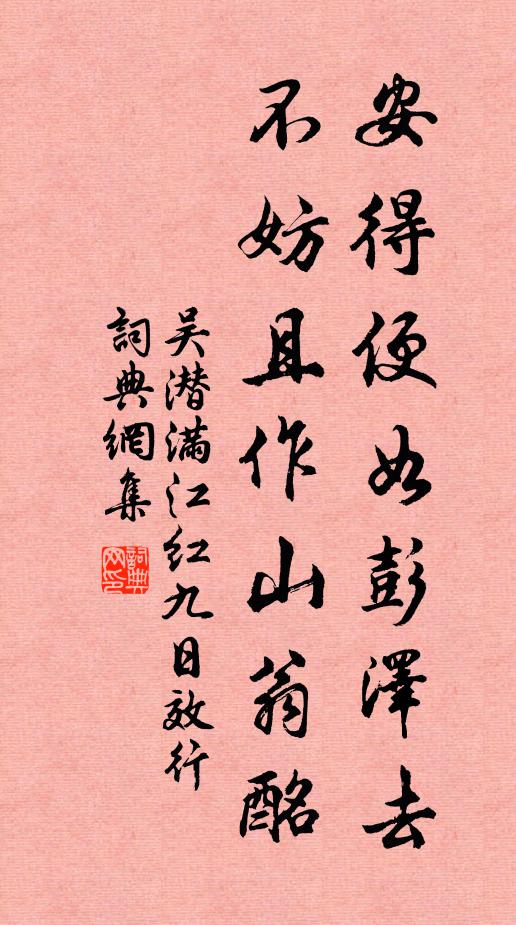 安得便如彭澤去
不妨且作山翁酩
吴潜滿江红九日效行
詞典網集
詞典網印